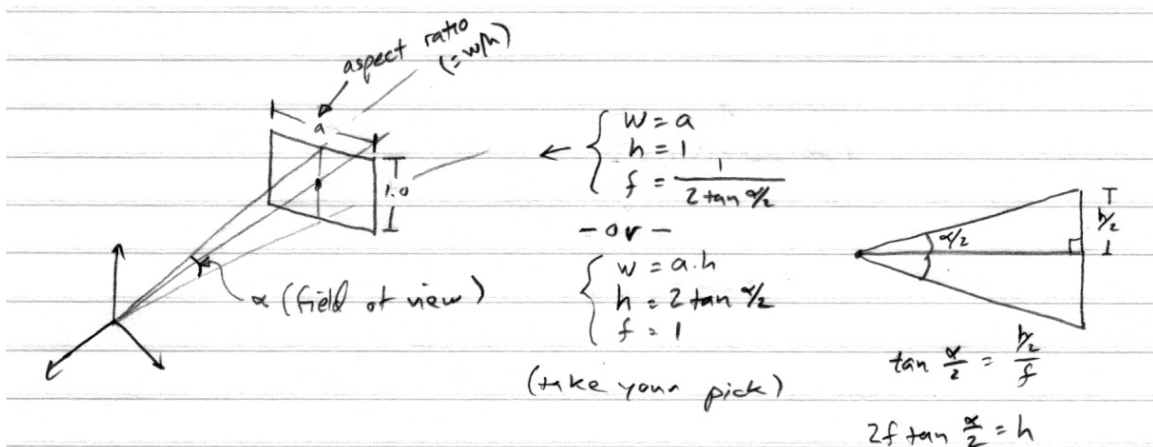 aspect ratio
(=w/h)
a
1.0
α (field of view)
w = a
h = 1
f = 1 / (2 tan α/2)
- or -
w = a.h
h = 2 tan α/2
f = 1
(take your pick)
α/2
h/2
tan α/2 = (h/2) / f
2f tan α/2 = h